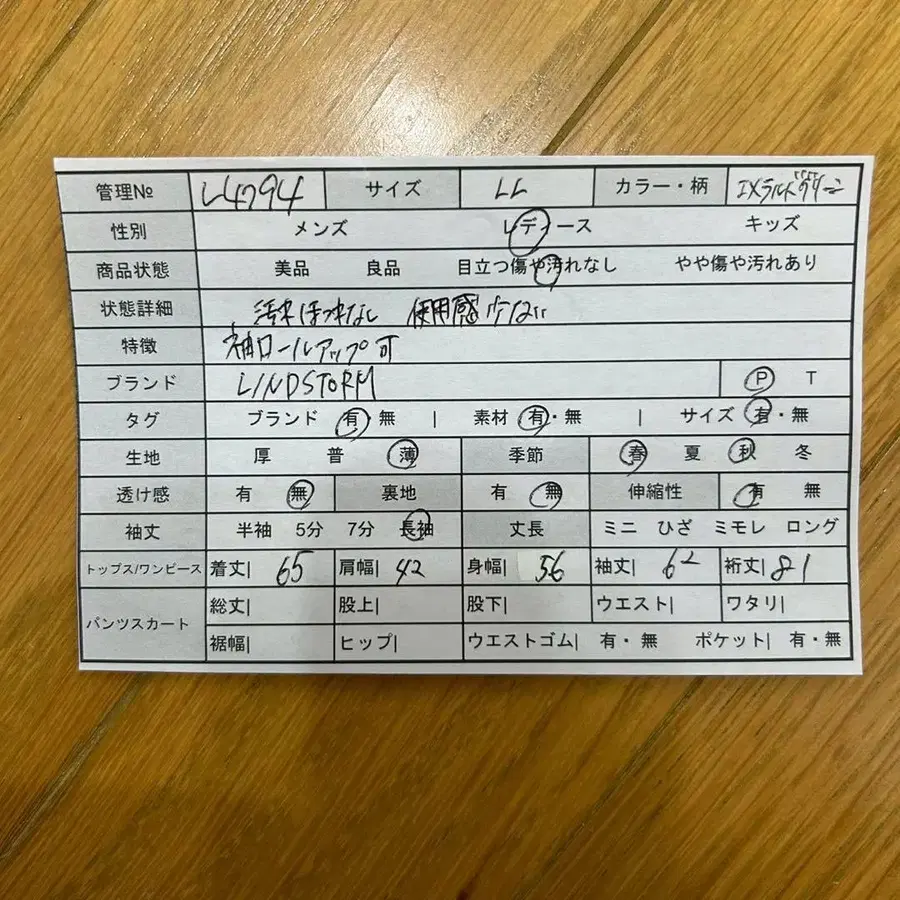 管理№ LL4794 サイズ LL カラー・柄 エメラルドグリーン
性別 メンズ レディース キッズ
商品状態 美品 良品 目立つ傷や汚れなし やや傷や汚れあり
状態詳細 汚れほつれなし 使用感少ない
特徴 袖ロールアップ可
ブランド LINDSTORM P T
タグ ブランド 有 無 | 素材 有・無 | サイズ 有・無
生地 厚 普 薄 季節 春 夏 秋 冬
透け感 有 無 裏地 有 無 伸縮性 有 無
袖丈 半袖 5分 7分 長袖 丈長 ミニ ひざ ミモレ ロング
トップス/ワンピース 着丈| 65 肩幅| 42 身幅| 56 袖丈| 62 裄丈| 81
パンツスカート 総丈| 股上| 股下| ウエスト| ワタリ|
裾幅| ヒップ| ウエストゴム| 有・無 ポケット| 有・無